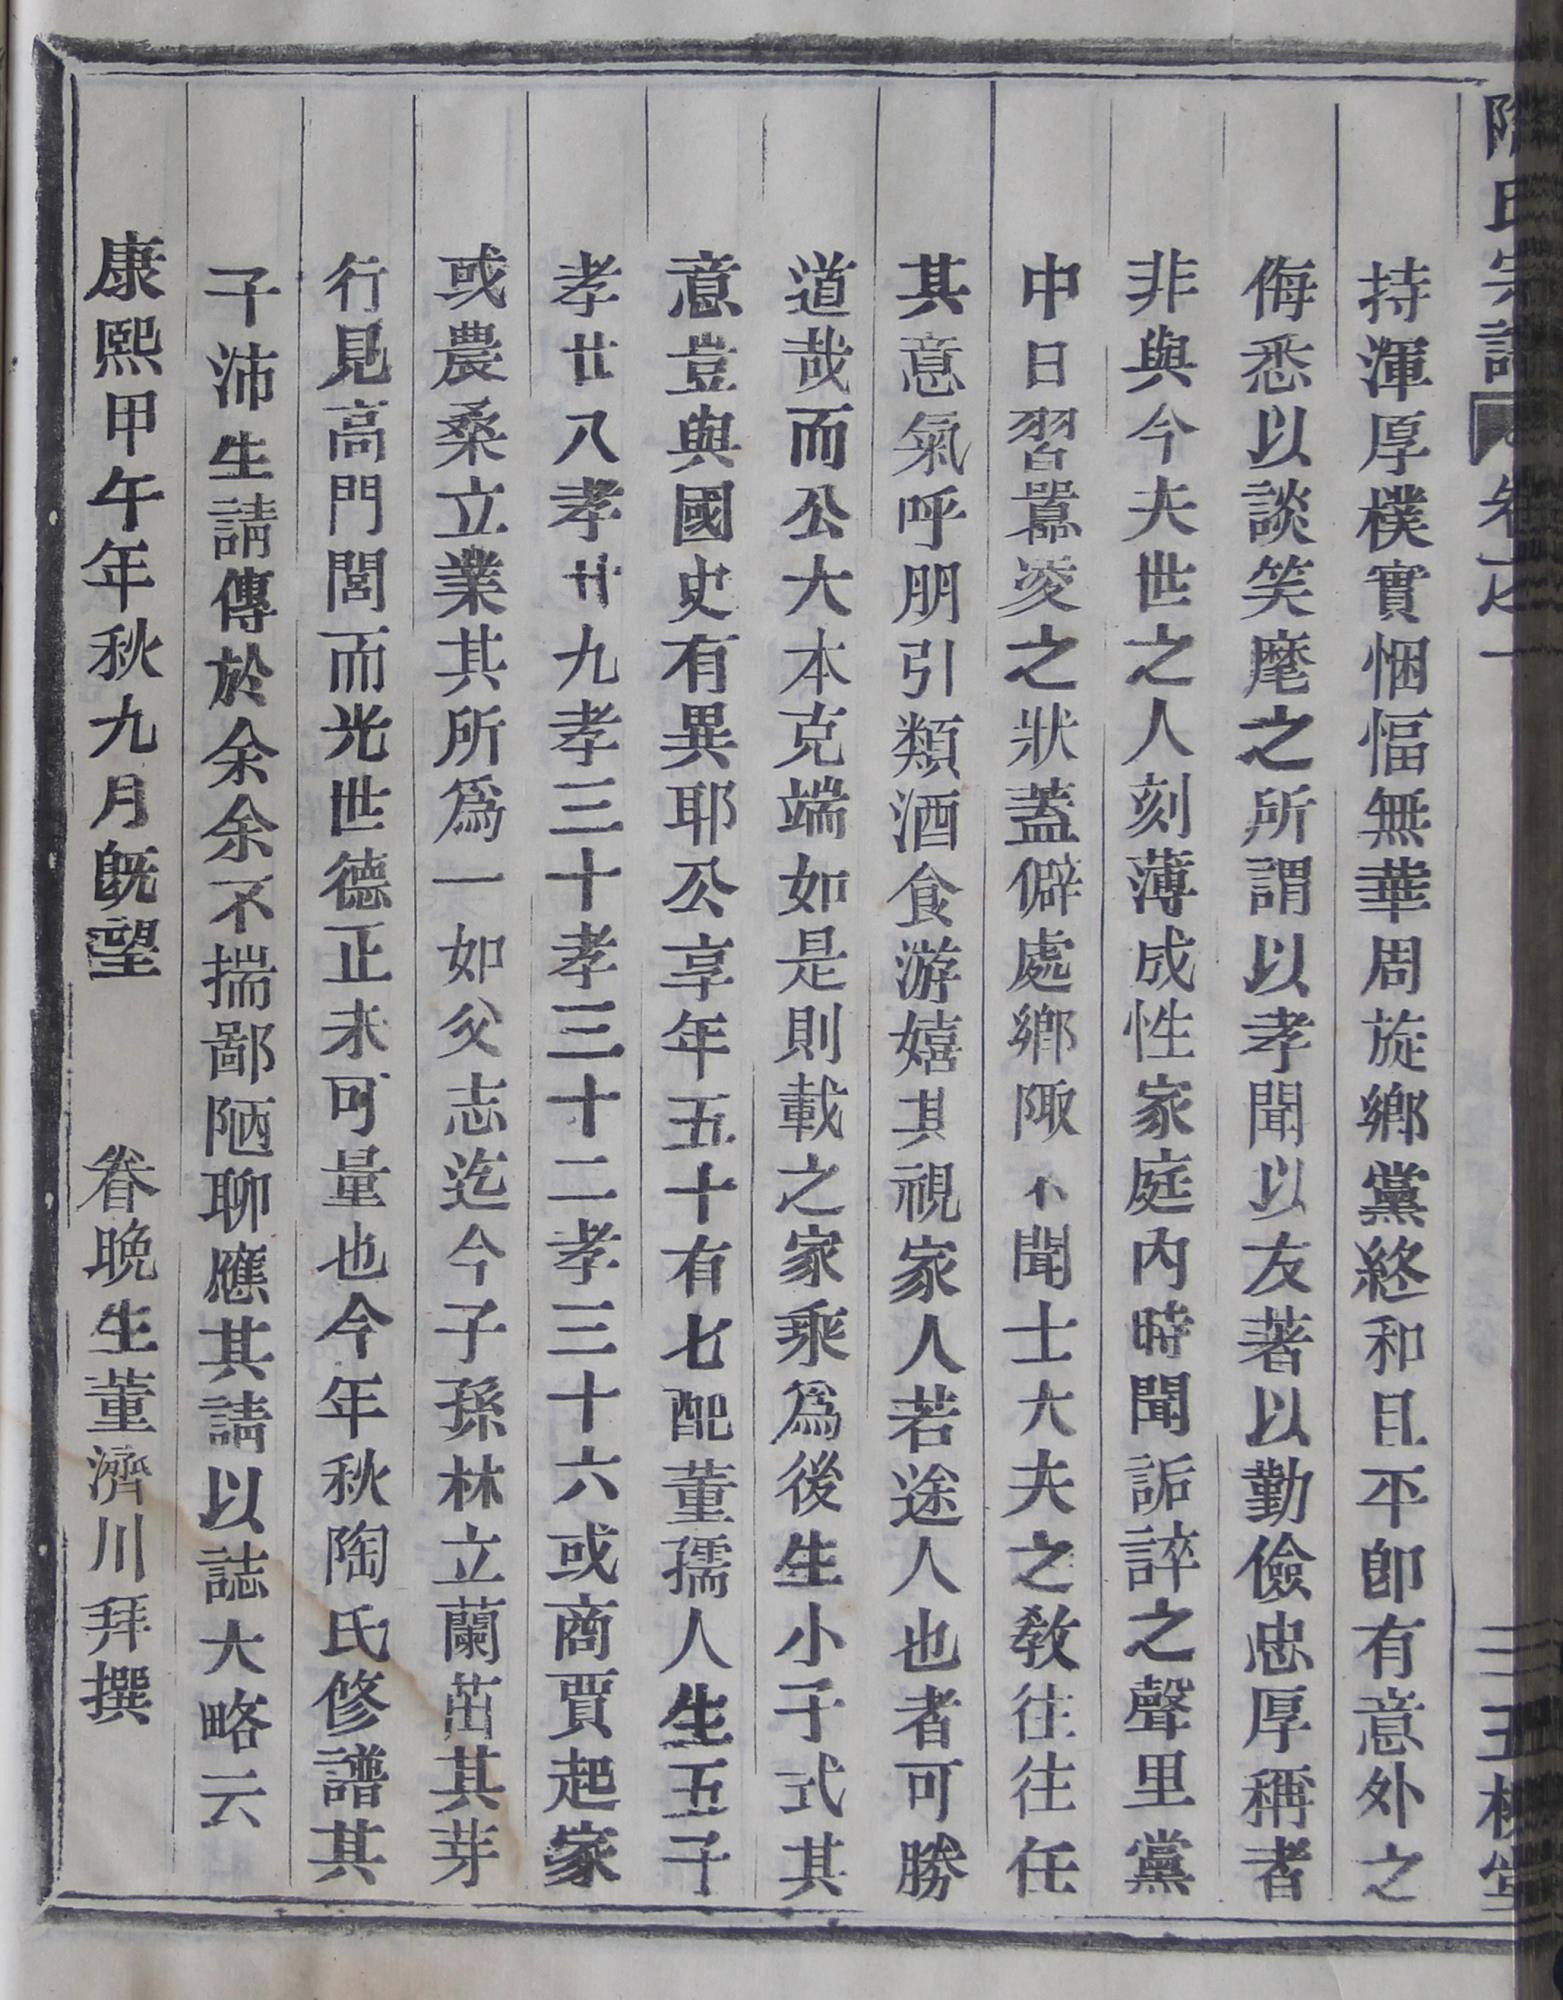 氏宗譜 卷之一
持渾厚樸實悃愊無華周旋鄉黨終和且平卽有意外之
侮悉以談笑麾之所謂以孝聞以友著以勤儉忠厚稱者
非與今夫世之人刻薄成性家庭內時聞詬誶之聲里黨
中日習囂凌之狀蓋僻處鄉陬不聞士大夫之敎往往任
其意氣呼朋引類酒食游嬉其視家人若途人也者可勝
道哉而公大本克端如是則載之家乘爲後生小子式其
意豈與國史有異耶公享年五十有七配董孺人生五子
孝廿八孝廿九孝三十孝三十二孝三十六或商賈起家
或農桑立業其所爲一如父志迄今子孫林立蘭茁其芽
行見高門閭而光世德正未可量也今年秋陶氏修譜其
子沛生請傳於余余不揣鄙陋聊應其請以誌大略云
康熙甲午年秋九月旣望 眷晚生董濟川拜撰